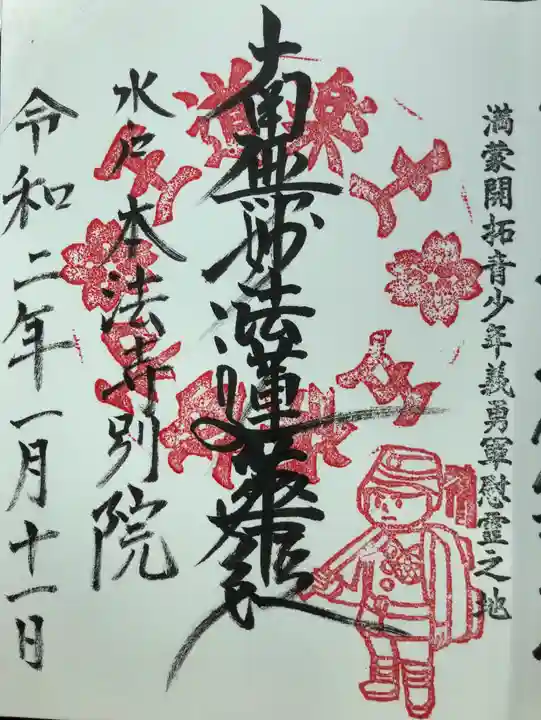 満蒙開拓青少年義勇軍慰霊之地
南無妙法蓮華経
水戸 本法寺別院
令和二年一月十一日